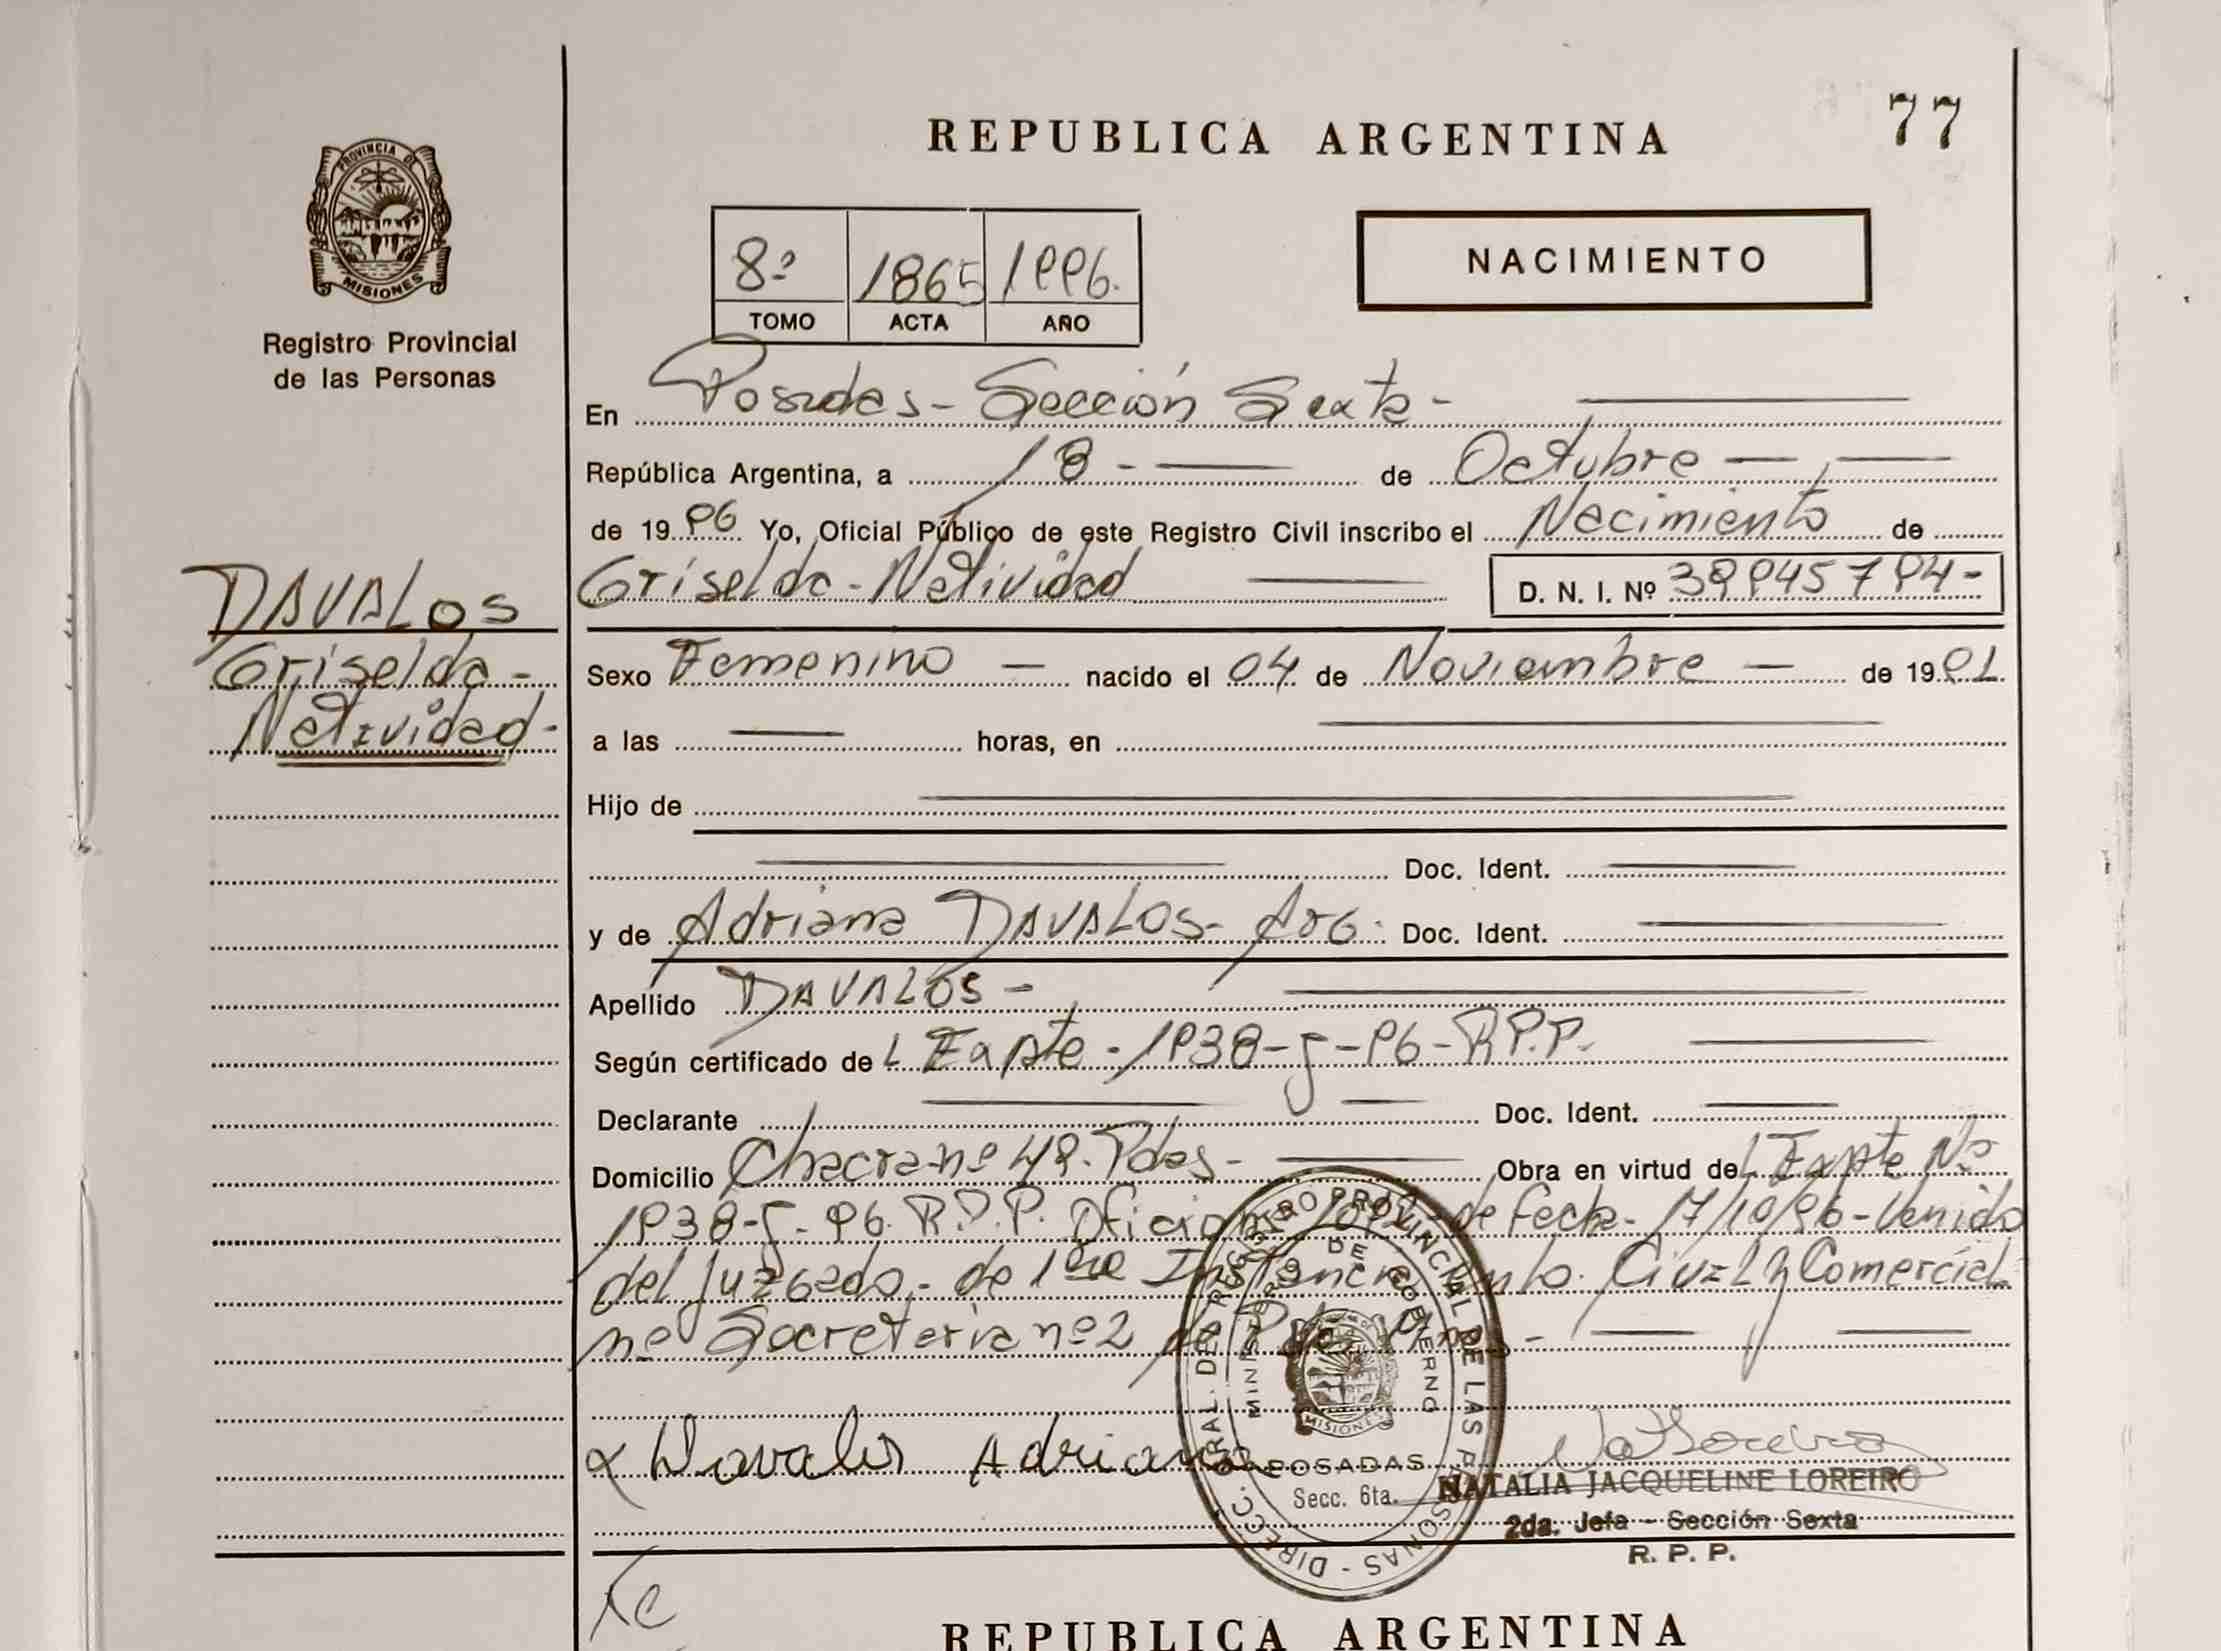 77
REPUBLICA ARGENTINA
PROVINCIA DE MISIONES
Registro Provincial
de las Personas
8º 1865 1996.
TOMO ACTA AÑO
NACIMIENTO
En Posadas - Sección Sexta -
República Argentina, a 18 - de Octubre
de 1996 Yo, Oficial Público de este Registro Civil inscribo el Nacimiento de
Griselda - Natividad D. N. I. Nº
DAVALOS
Griselda -
Natividad -
Sexo Femenino nacido el 04 de Noviembre de 1991
a las horas, en
Hijo de
Doc. Ident.
y de Adriana DAVALOS - Arg. Doc. Ident.
Apellido DAVALOS -
Según certificado de L Expte - 1938 - J - 96 - R.P.P.
Declarante Doc. Ident.
Domicilio Chacra nº 49. Pdas - Obra en virtud del Expte Nº
1938 - J - 96. R.P.P. Oficio de Fecha - 17/10/96 - Venido
del Juzgado - de 1era Instancia en lo Civil y Comercial
nº Secretaria nº 2 de
Davalos Adriana
DIRECC. GRAL. DE REGISTRO PROVINCIAL DE LAS PERSONAS
MINISTERIO DE GOBIERNO
MISIONES
POSADAS
Secc. 6ta.
NATALIA JACQUELINE LOREIRO
2da. Jefa - Sección Sexta
R. P. P.
REPUBLICA ARGENTINA